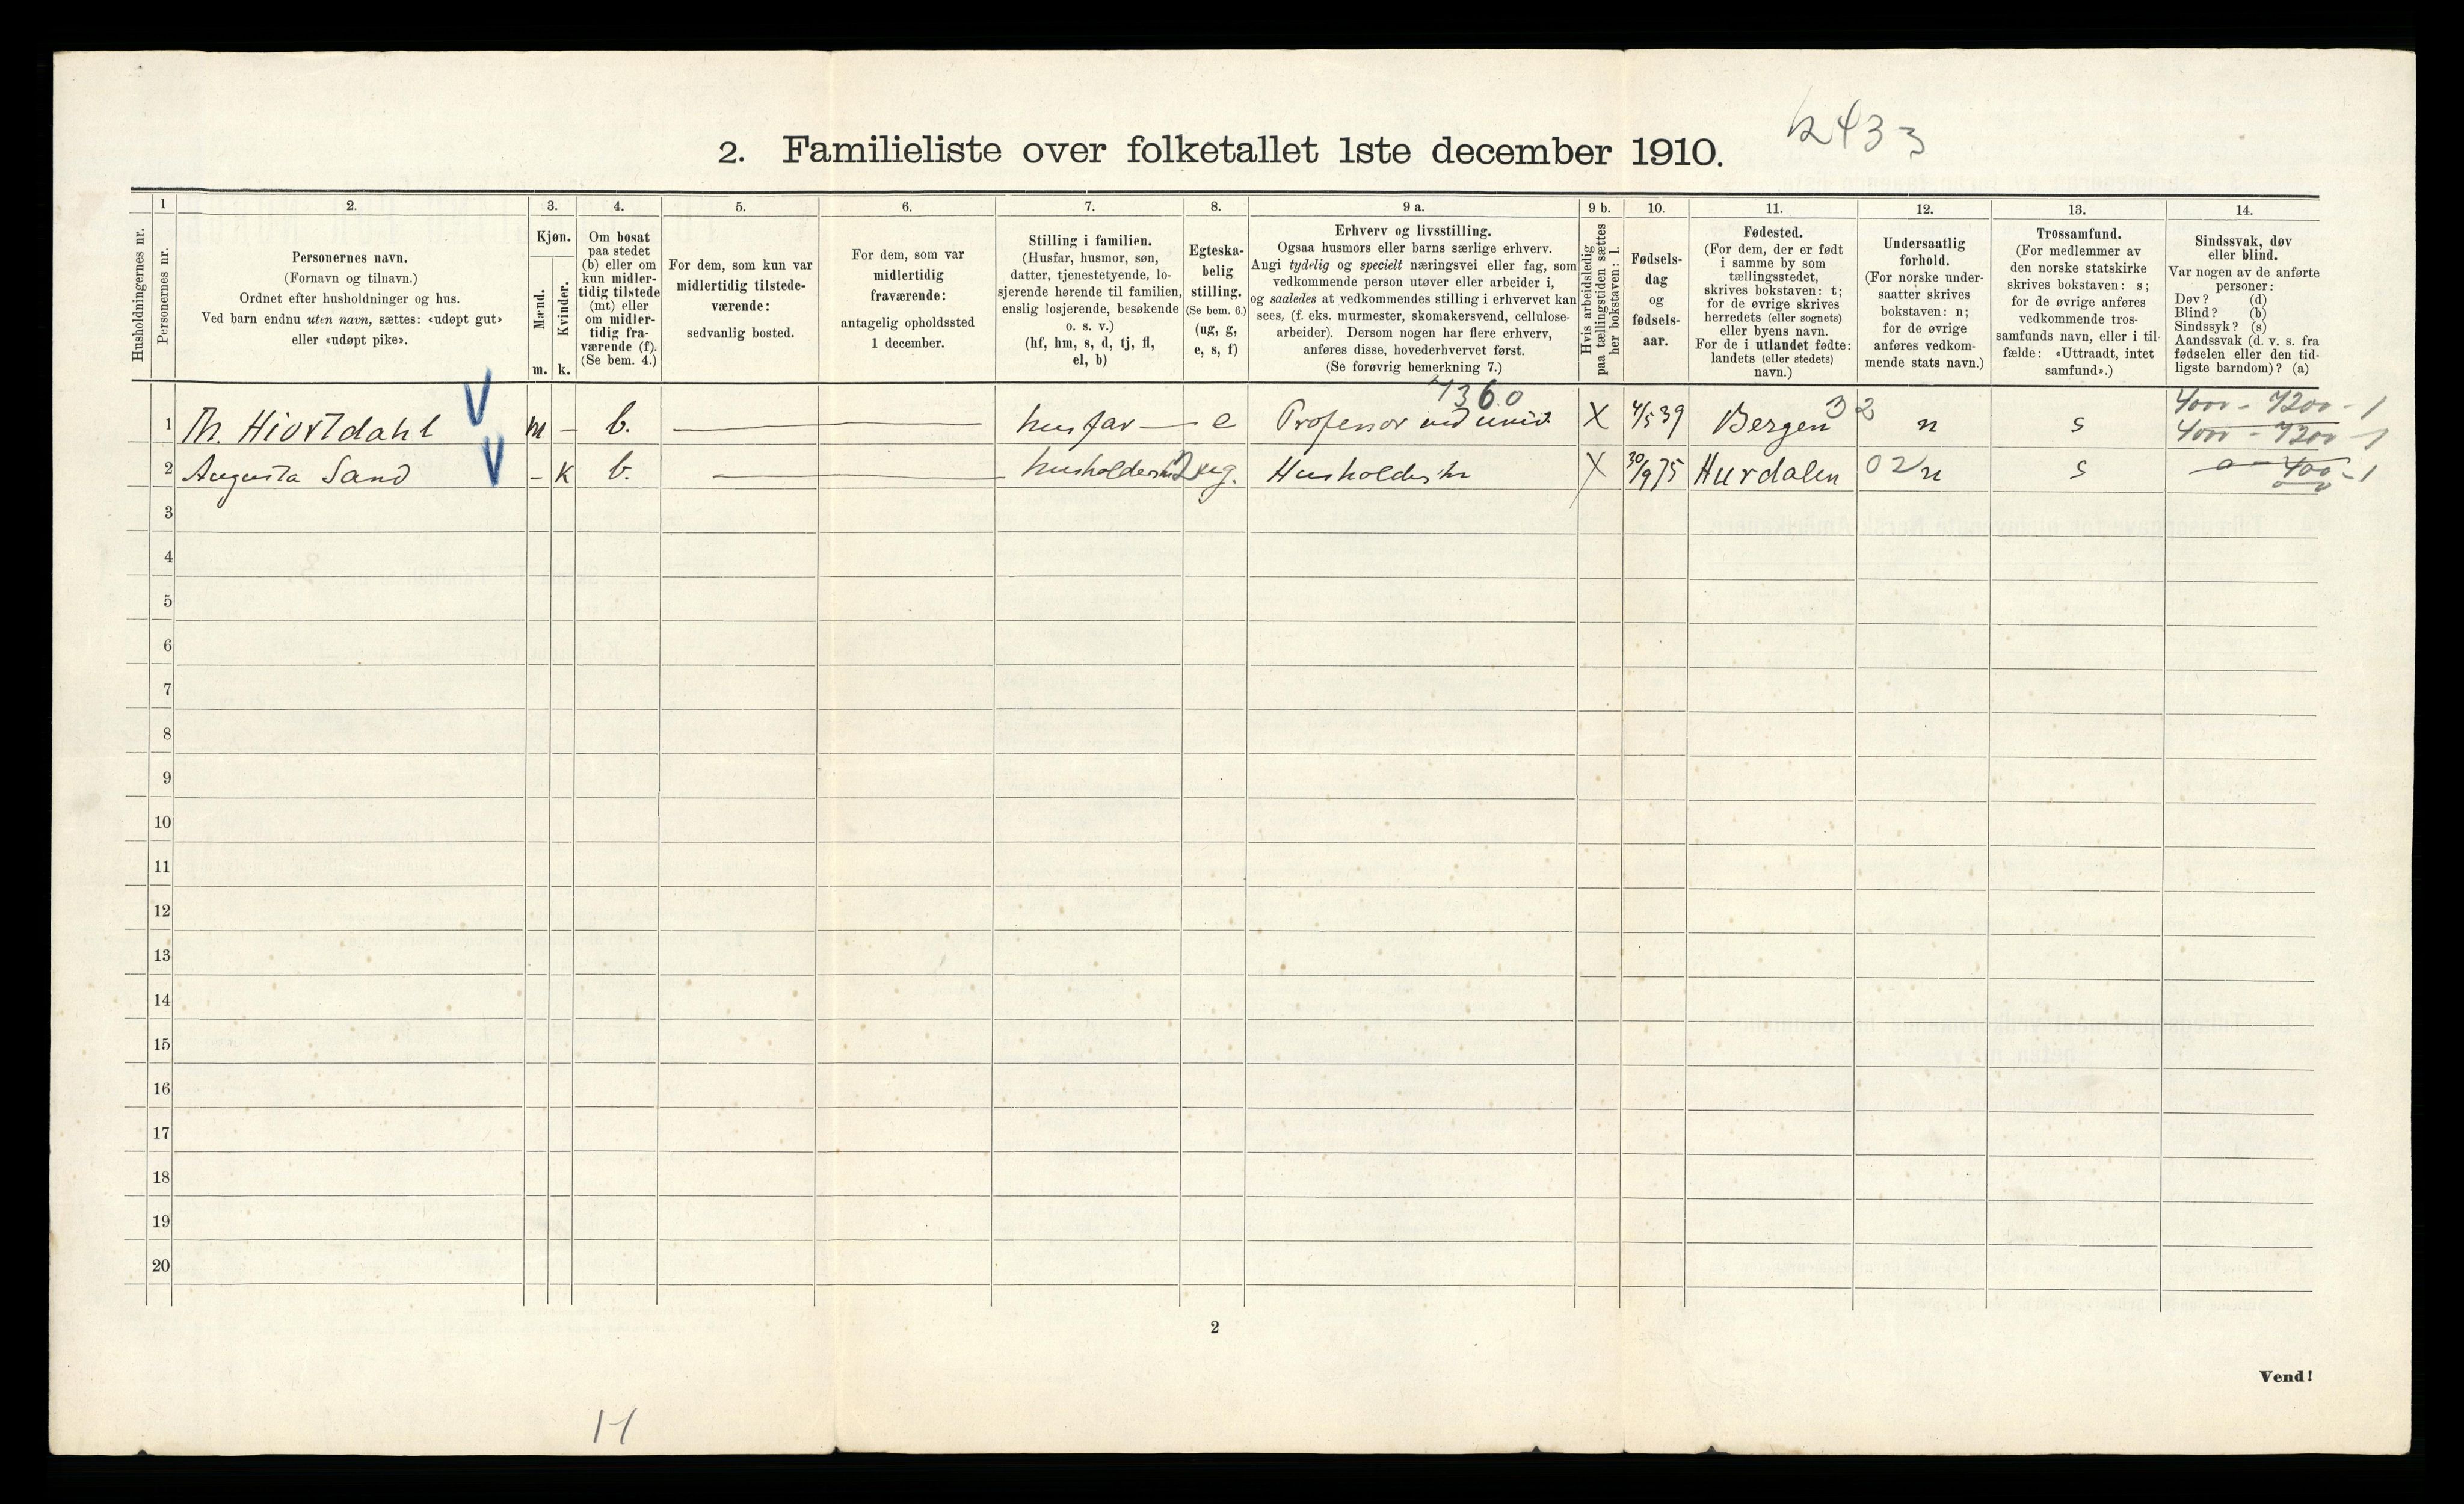 2. Familieliste over folketallet 1ste december 1910.
2433
Husholdningernes nr.
1
Personernes nr.
2.
Personernes navn.
(Fornavn og tilnavn.)
Ordnet efter husholdninger og hus.
Ved barn endnu uten navn, sættes: «udøpt gut»
eller «udøpt pike».
3.
Kjøn.
Mænd.
m.
Kvinder.
k.
4.
Om bosat
paa stedet
(b) eller om
kun midler-
tidig tilstede
(mt) eller
om midler-
tidig fra-
værende (f).
(Se bem. 4.)
5.
For dem, som kun var
midlertidig tilstede-
værende:
sedvanlig bosted.
6.
For dem, som var
midlertidig
fraværende:
antagelig opholdssted
1 december.
7.
Stilling i familien.
(Husfar, husmor, søn,
datter, tjenestetyende, lo-
sjerende hørende til familien,
enslig losjerende, besøkende
o. s. v.)
(hf, hm, s, d, tj, fl,
el, b)
8.
Egteska-
belig
stilling.
(Se bem. 6.)
(ug, g,
e, s, f)
9 a.
Erhverv og livsstilling.
Ogsaa husmors eller barns særlige erhverv.
Angi tydelig og specielt næringsvei eller fag, som
vedkommende person utøver eller arbeider i,
og saaledes at vedkommendes stilling i erhvervet kan
sees, (f. eks. murmester, skomakersvend, cellulose-
arbeider). Dersom nogen har flere erhverv,
anføres disse, hovederhvervet først.
(Se forøvrig bemerkning 7.)
9 b.
Hvis arbeidsledig
paa tællingstiden sættes
her bokstaven: l.
10.
Fødsels-
dag
og
fødsels-
aar.
11.
Fødested.
(For dem, der er født
i samme by som
tællingsstedet,
skrives bokstaven: t;
for de øvrige skrives
herredets (eller sognets)
eller byens navn.
For de i utlandet fødte:
landets (eller stedets)
navn.)
12.
Undersaatlig
forhold.
(For norske under-
saatter skrives
bokstaven: n;
for de øvrige
anføres vedkom-
mende stats navn.)
13.
Trossamfund.
(For medlemmer av
den norske statskirke
skrives bokstaven: s;
for de øvrige anføres
vedkommende tros-
samfunds navn, eller i til-
fælde: «Uttraadt, intet
samfund».)
14.
Sindssvak, døv
eller blind.
Var nogen av de anførte
personer:
Døv? (d)
Blind? (b)
Sindssyk? (s)
Aandssvak (d. v. s. fra
fødselen eller den tid-
ligste barndom)? (a)
7360
4000 - 7200 - 1
1 Th. Hiortdahl V m - b. husfar e Professor ved univ. X 4/5 39 Bergen 32 n s 4000 - 7200 - 1
2 Augusta Sand V - K b. ug. X 30/9 75 Hurdalen 02 n s 400 - 1
3
4
5
6
7
8
9
10
11
12
13
14
15
16
17
18
19
20
2
Vend!